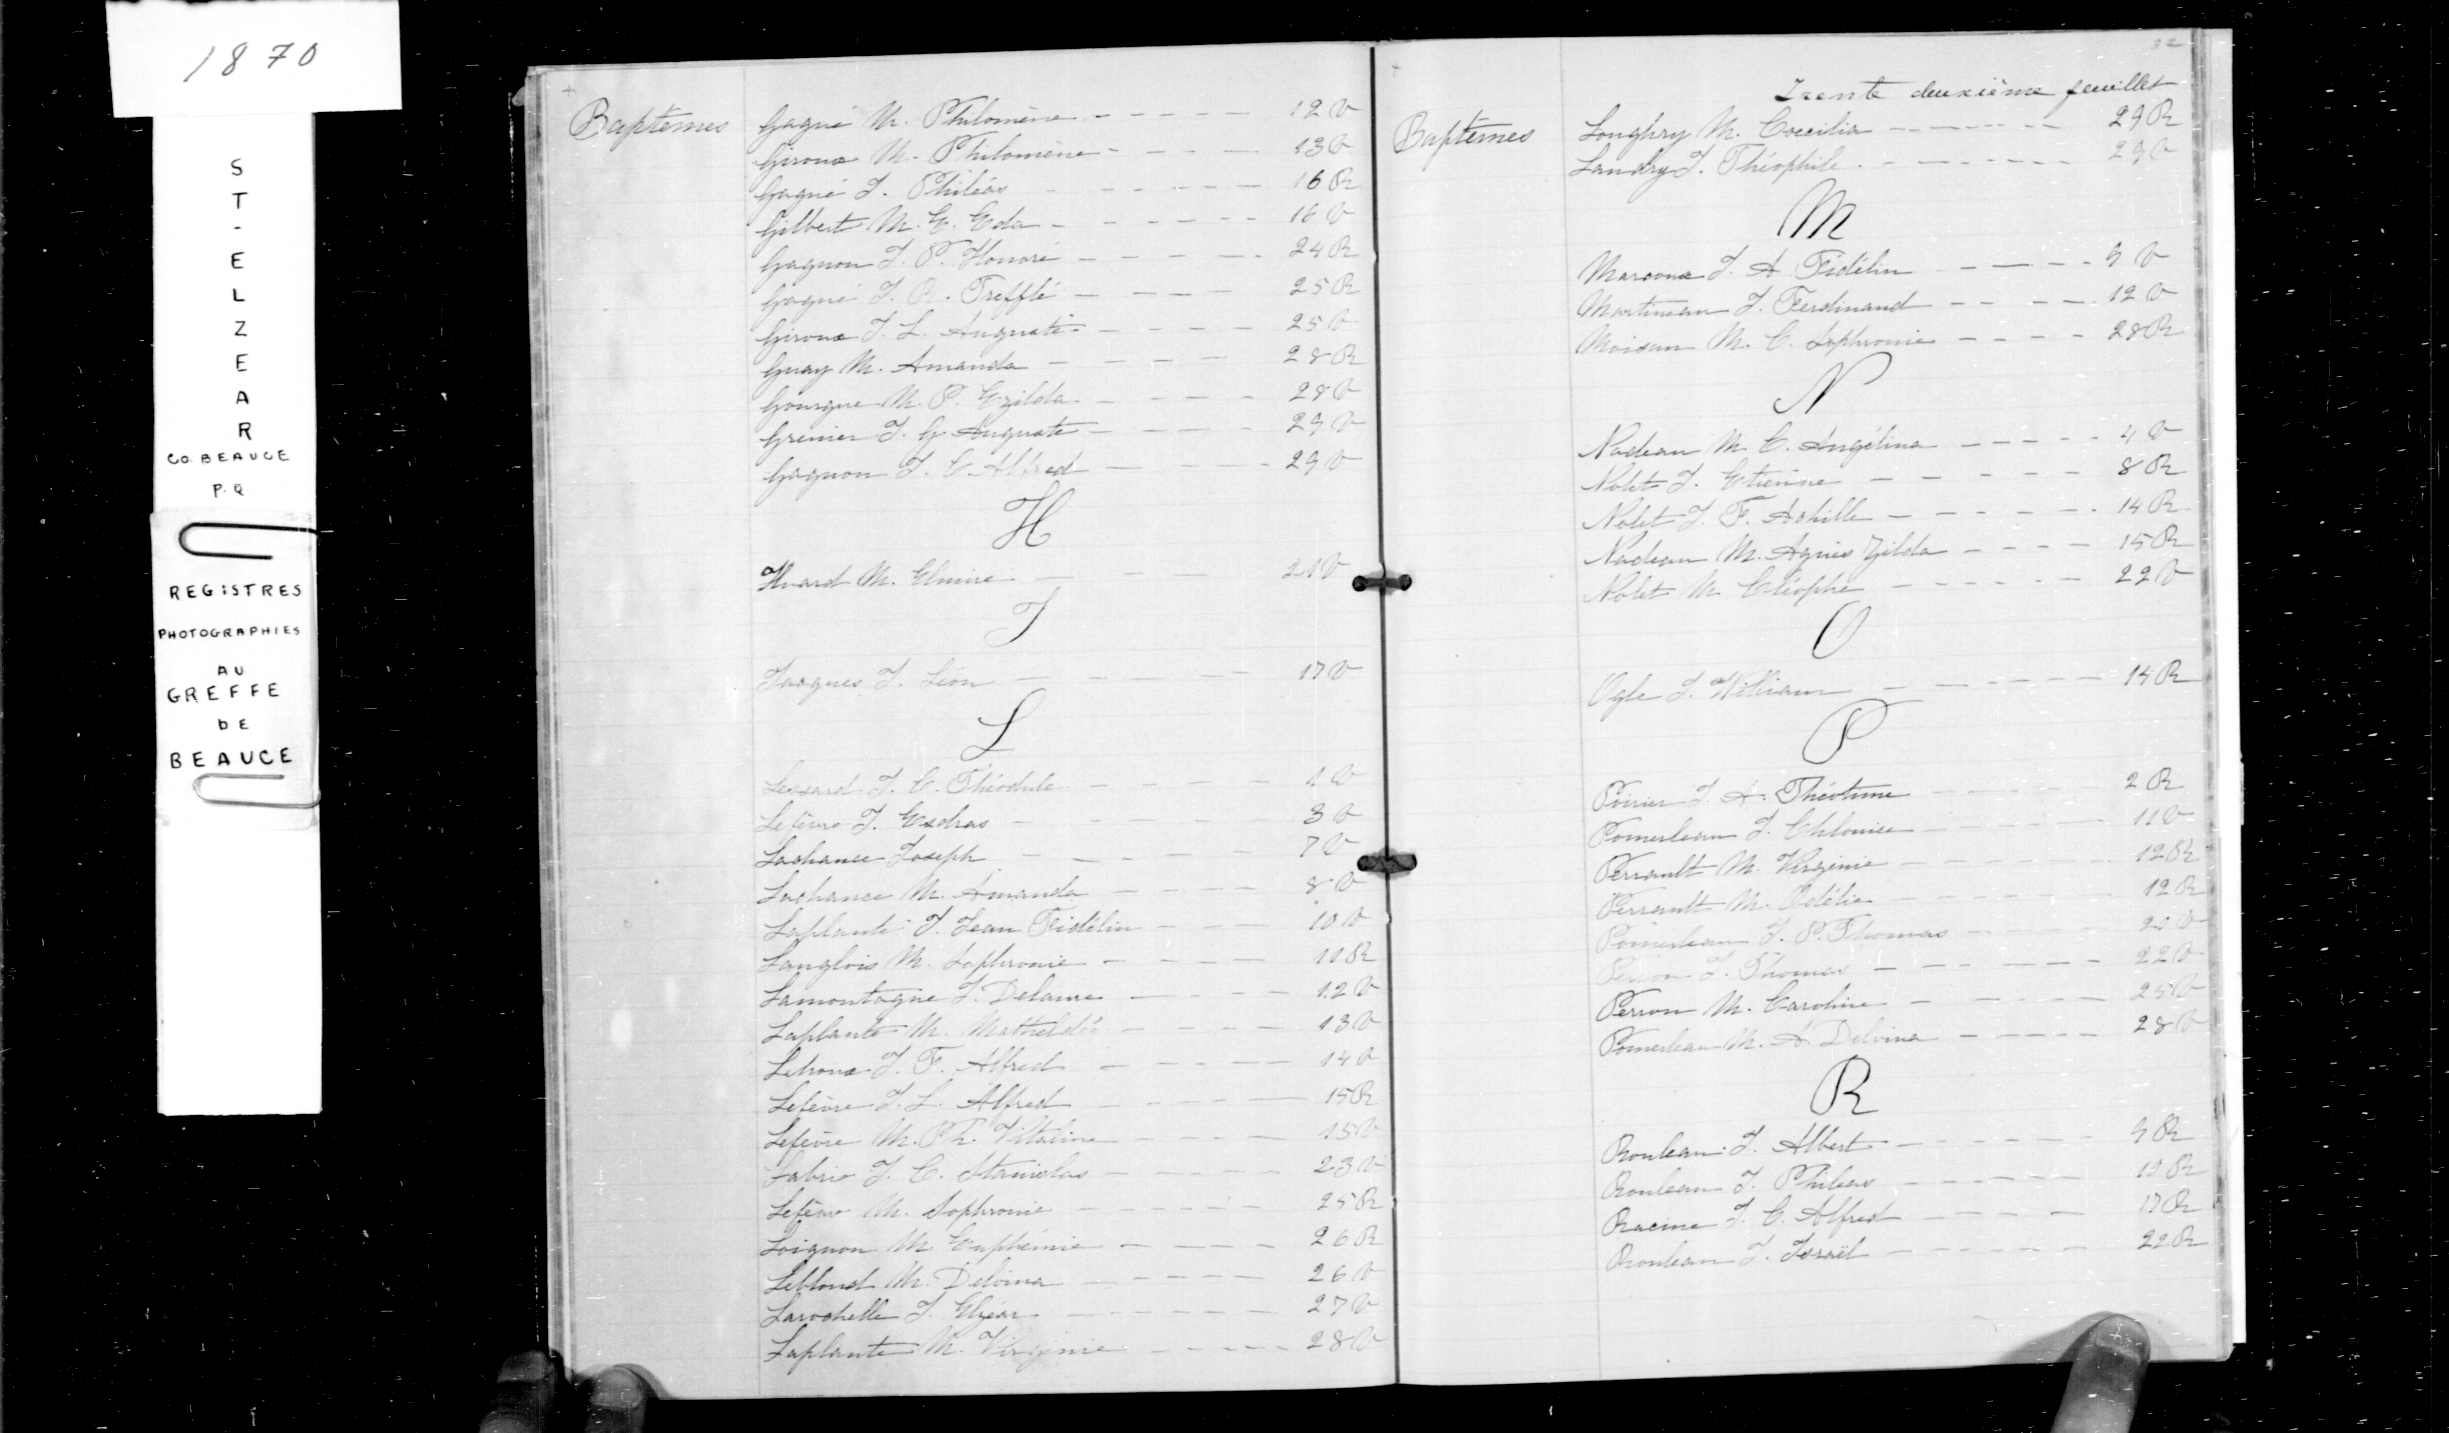 1870
ST-ELZEAR
CO. BEAUCE
P.Q
REGISTRES
PHOTOGRAPHIES
AU
GREFFE
DE
BEAUCE
Baptêmes
Gagné M. Philomène 12 V
Giroux M. Philomène 13 V
Gagné J. Philéas 16 R
Gilbert M. E. Eda 16 V
Gagnon J. P. Honoré 24 R
Gagné J. R. Trefflé 25 R
Giroux J. L. Auguste 25 V
Guay M. Amanda 28 R
Gourgue M. P. Ezilda 28 V
Grenier J. G. Auguste 29 V
Gagnon J. C. Alfred 29 V
H
Huard M. Elmire 21 V
J
Jacques J. Léon 17 V
L
Lessard J. C. Théodule 1 V
Lefèvre J. Esdras 3 V
Lachance Joseph 7 V
Lachance M. Amanda 8 V
Laplante J. Jean Fidélin 10 V
Langlois M. Sophronie 11 R
Lamontagne J. 12 V
Laplante M. 13 V
Lehoux J. F. Alfred 14 V
Lefèvre J. L. Alfred 15 R
Lefèvre M. Ph. Vitaline 15 V
Labrie J. C. Stanislas 23 V
Lefèvre M. Sophronie 25 R
Loignon M. Euphémie 26 R
Leblond M. Delvina 26 V
Larochelle J. Elzéar 27 V
Laplante M. Virginie 28 V
32
Trente deuxième feuillet
Baptêmes
Loughry M. Coecilia 29 R
Landry J. Théophile 29 V
M
Marcoux J. A. Fidélin 9 V
Martineau J. Ferdinand 12 V
Moisan M. C. Sophronie 28 R
N
Nadeau M. C. Angélina 4 V
Nolet J. Etienne 8 R
Nolet J. F. Achille 14 R
Nadeau M. Agnès Zilda 15 R
Nolet M. Cléophe 22 V
O
Ogle J. William 14 R
P
Poirier J. A. Théotime 2 R
Pomerleau J. 11 V
Perrault M. Virginie 12 R
Perrault M. Odélie 12 R
Pomerleau J. P. Thomas V
Perron J. Thomas 22 V
Perron M. Caroline 25 V
Pomerleau M. A. Delvina 28 V
R
Rouleau J. Albert 9 R
Rouleau J. Phileas R
Racine J. C. Alfred 17 R
Rouleau J. Israël 22 R